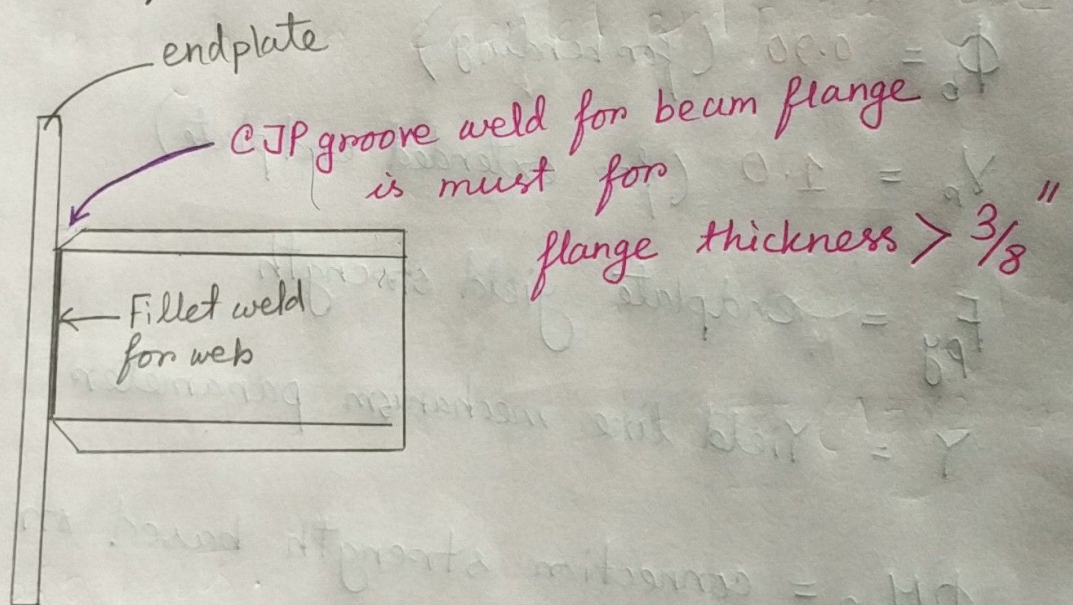 endplate
CJP groove weld for beam flange
is must for
flange thickness > 3/8"
Fillet weld
for web